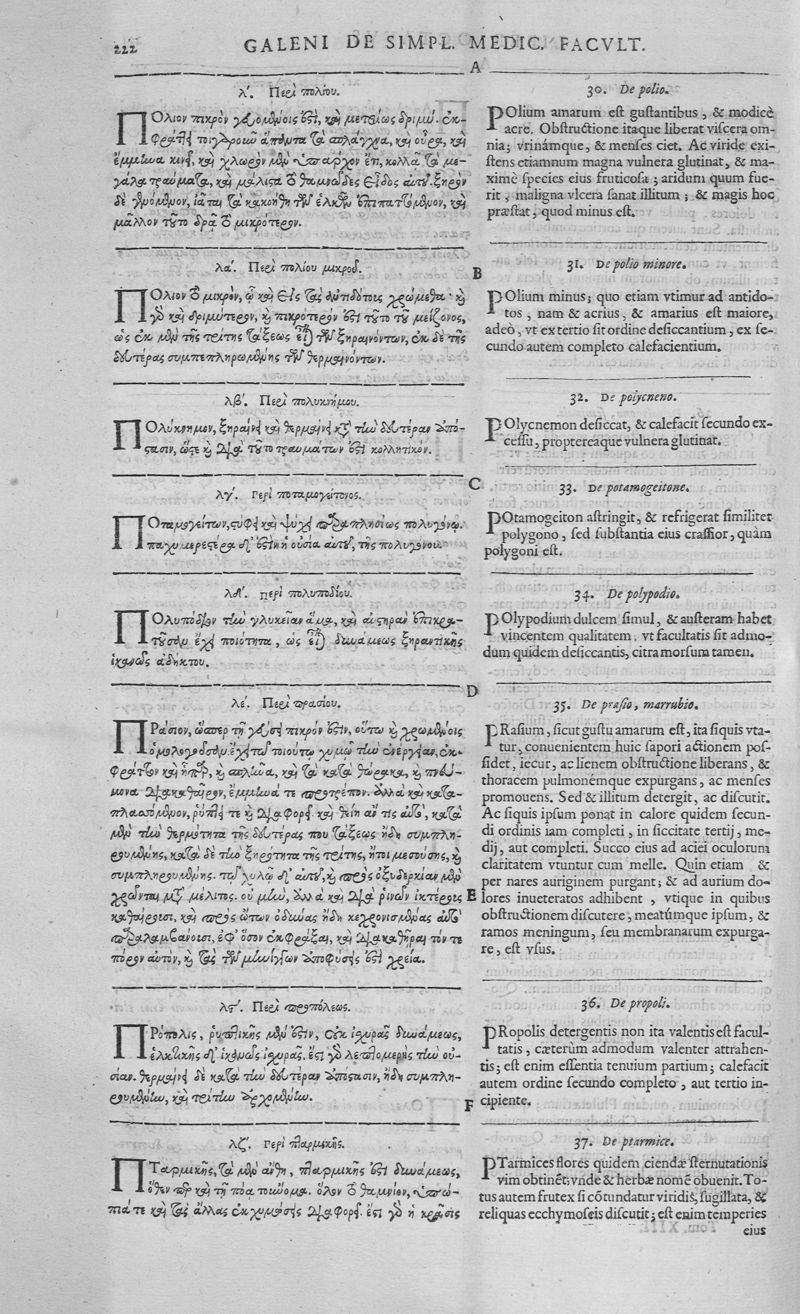 222
GALENI DE SIMPL. MEDIC. FACVLT.
A
λ΄. Περὶ πολίου.
ΠΟλιον πικρὸν γευομένοις ἐστὶ, καὶ μετρίως δριμύ. ἐκ-
φράττει τοιγαροῦν ἅπαντα τὰ σπλάγχνα, καὶ οὖρα, καὶ
ἔμμηνα κινεῖ, καὶ χλωρὸν μὲν ὑπάρχον ἔτι, κολλᾷ τὰ με-
γάλα τραύματα, καὶ μάλιστα τὸ θαμνῶδες εἶδος αὐτοῦ. ξηρὸν
δὲ γενόμενον, ἰᾶται τὰ κακοήθη τῶν ἑλκῶν ἐπιπαττόμενον, καὶ
μᾶλλον τοῦτο δρᾷ τὸ μικρότερον.
λα΄. Περὶ πολίου μικροῦ.
B
ΠΟλιον τὸ μικρὸν, ᾧ καὶ εἰς τὰς ἀντιδότους χρώμεθα· καὶ
γὰρ καὶ δριμύτερον, καὶ πικρότερόν ἐστι τοῦτο τοῦ μείζονος,
ὡς ἐκ μὲν τῆς τρίτης τάξεως εἶναι τῶν ξηραινόντων, ἐκ δὲ τῆς
δευτέρας συμπεπληρωμένης τῶν θερμαινόντων.
λβ΄. Περὶ πολυκνήμου.
ΠΟλύκνημον, ξηραίνει καὶ θερμαίνει κατὰ τὴν δευτέραν ἀπό-
στασιν, ὥστε καὶ διὰ τοῦτο τραυμάτων ἐστὶ κολλητικόν.
C
λγ΄. Περὶ ποταμογείτονος.
ΠΟταμογείτων, στύφει καὶ ψύχει παραπλησίως πολυγόνῳ.
παχυμερεστέρα δ' ἐστὶν ἡ οὐσία αὐτοῦ, τῆς πολυγόνου.
λδ΄. Περὶ πολυποδίου.
ΠΟλυπόδιον τὴν γλυκεῖαν ἅμα, καὶ αὐστηρὰν ἐπικρα-
τοῦσαν ἔχει ποιότητα, ὡς εἶναι δυνάμεως ξηραντικῆς
ἱκανῶς ἀδήκτου.
D
λε΄. Περὶ πρασίου.
ΠΡάσιον, ὥσπερ τῇ γεύσει πικρόν ἐστιν, οὕτω καὶ χρωμένοις
ὁμολογοῦσαν ἔχει τῷ τοιούτῳ χυμῷ τὴν ἐνέργειαν, ἐκ-
φράττον καὶ ἧπαρ, καὶ σπλῆνα, καὶ τὰ κατὰ θώρακα, καὶ πνεύ-
μονα διακαθαῖρον, ἔμμηνά τε προτρέπον. ἀλλὰ καὶ κατα-
πλασσόμενον, ῥύπτει τε καὶ διαφορεῖ. καὶ θείη ἄν τις αὐτὸ, κατὰ
μὲν τὴν θερμότητα τῆς δευτέρας που τάξεως ἤδη συμπλη-
ρουμένης, κατὰ δὲ τὴν ξηρότητα τῆς τρίτης, ἤτοι μεσούσης, καὶ
συμπληρουμένης. τῷ χυλῷ δ' αὐτοῦ, καὶ πρὸς ὀξυδερκίαν μὲν
χρῶνται μετὰ μέλιτος. οὐ μὴν, ἀλλὰ καὶ διὰ ῥινῶν ἰκτέρους
E
καθαίρουσι, καὶ πρὸς ὤτων ὀδύνας ἤδη κεχρονισμένας αὐτὸ
παραλαμβάνουσι, ἐφ' ὅσον ἐκφράξαι, καὶ διακαθῆραι τόν τε
πόρον αὐτὸν, καὶ τὰς τῶν μηνίγγων ἀποφύσεις ἐστὶ χρεία.
λϛ΄. Περὶ προπόλεως.
ΠΡόπολις, ῥυπτικῆς μέν ἐστιν, οὐκ ἰσχυρᾶς δυνάμεως,
ἑλκτικῆς δ' ἱκανῶς ἰσχυρᾶς. ἔστι γὰρ λεπτομερὴς τὴν οὐ-
σίαν. θερμαίνει δὲ κατὰ τὴν δευτέραν ἀπόστασιν, ἤδη συμπλη-
ρουμένην, καὶ τρίτην ἀρχομένην.
F
λζ΄. Περὶ πταρμικῆς.
ΠΤαρμικῆς, τὰ μὲν ἄνθη, πταρμικῆς ἐστι δυνάμεως,
ὅθεν περ καὶ τῇ πόᾳ τοὔνομα. ὅλον τὸ θαμνίον, ὑπώ-
πιά τε καὶ τὰς ἄλλας ἐκχυμώσεις διαφορεῖ. ἔστι γὰρ ἡ κρᾶσις
30. De polio.
POlium amarum est gustantibus, & modicè
acre. Obstructione itaque liberat viscera om-
nia; vrinámque, & menses ciet. Ac viride exi-
stens etiamnum magna vulnera glutinat, & ma-
ximè species eius fruticosa; aridum quum fue-
rit, maligna vlcera sanat illitum; & magis hoc
præstat, quod minus est.
31. De polio minore.
POlium minus; quo etiam vtimur ad antido-
tos, nam & acrius, & amarius est maiore,
adeò, vt ex tertio sit ordine desiccantium, ex se-
cundo autem completo calefacientium.
32. De polycneno.
POlycnemon desiccat, & calefacit secundo ex-
cessu, proptereaque vulnera glutinat.
33. De potamogeitone.
POtamogeiton astringit, & refrigerat similiter
polygono, sed substantia eius crassior, quàm
polygoni est.
34. De polypodio.
POlypodium dulcem simul, & austeram habet
vincentem qualitatem, vt facultatis sit admo-
dum quidem desiccantis, citra morsum tamen.
35. De prasio, marrubio.
PRasium, sicut gustu amarum est, ita siquis vta-
tur, conuenientem huic sapori actionem pos-
sidet, iecur, ac lienem obstructione liberans, &
thoracem pulmonemque expurgans, ac menses
promouens. Sed & illitum detergit, ac discutit.
Ac siquis ipsum ponat in calore quidem secun-
di ordinis iam completi, in siccitate tertij, me-
dij, aut completi. Succo eius ad aciei oculorum
claritatem vtuntur cum melle. Quin etiam &
per nares auriginem purgant; & ad aurium do-
lores inueteratos adhibent, vtique in quibus
obstructionem discutere, meatúmque ipsum, &
ramos meningum, seu membranarum expurga-
re, est vsus.
36. De propoli.
PRopolis detergentis non ita valentis est facul-
tatis, cæterùm admodum valenter attrahen-
tis; est enim essentia tenuium partium; calefacit
autem ordine secundo completo, aut tertio in-
cipiente.
37. De ptarmice.
PTarmices flores quidem ciendæ sternutationis
vim obtinēt; vnde & herbæ nomē obuenit. To-
tus autem frutex si cōtundatur viridis, sugillata, &
reliquas ecchymoseis discutit; est enim temperies
eius